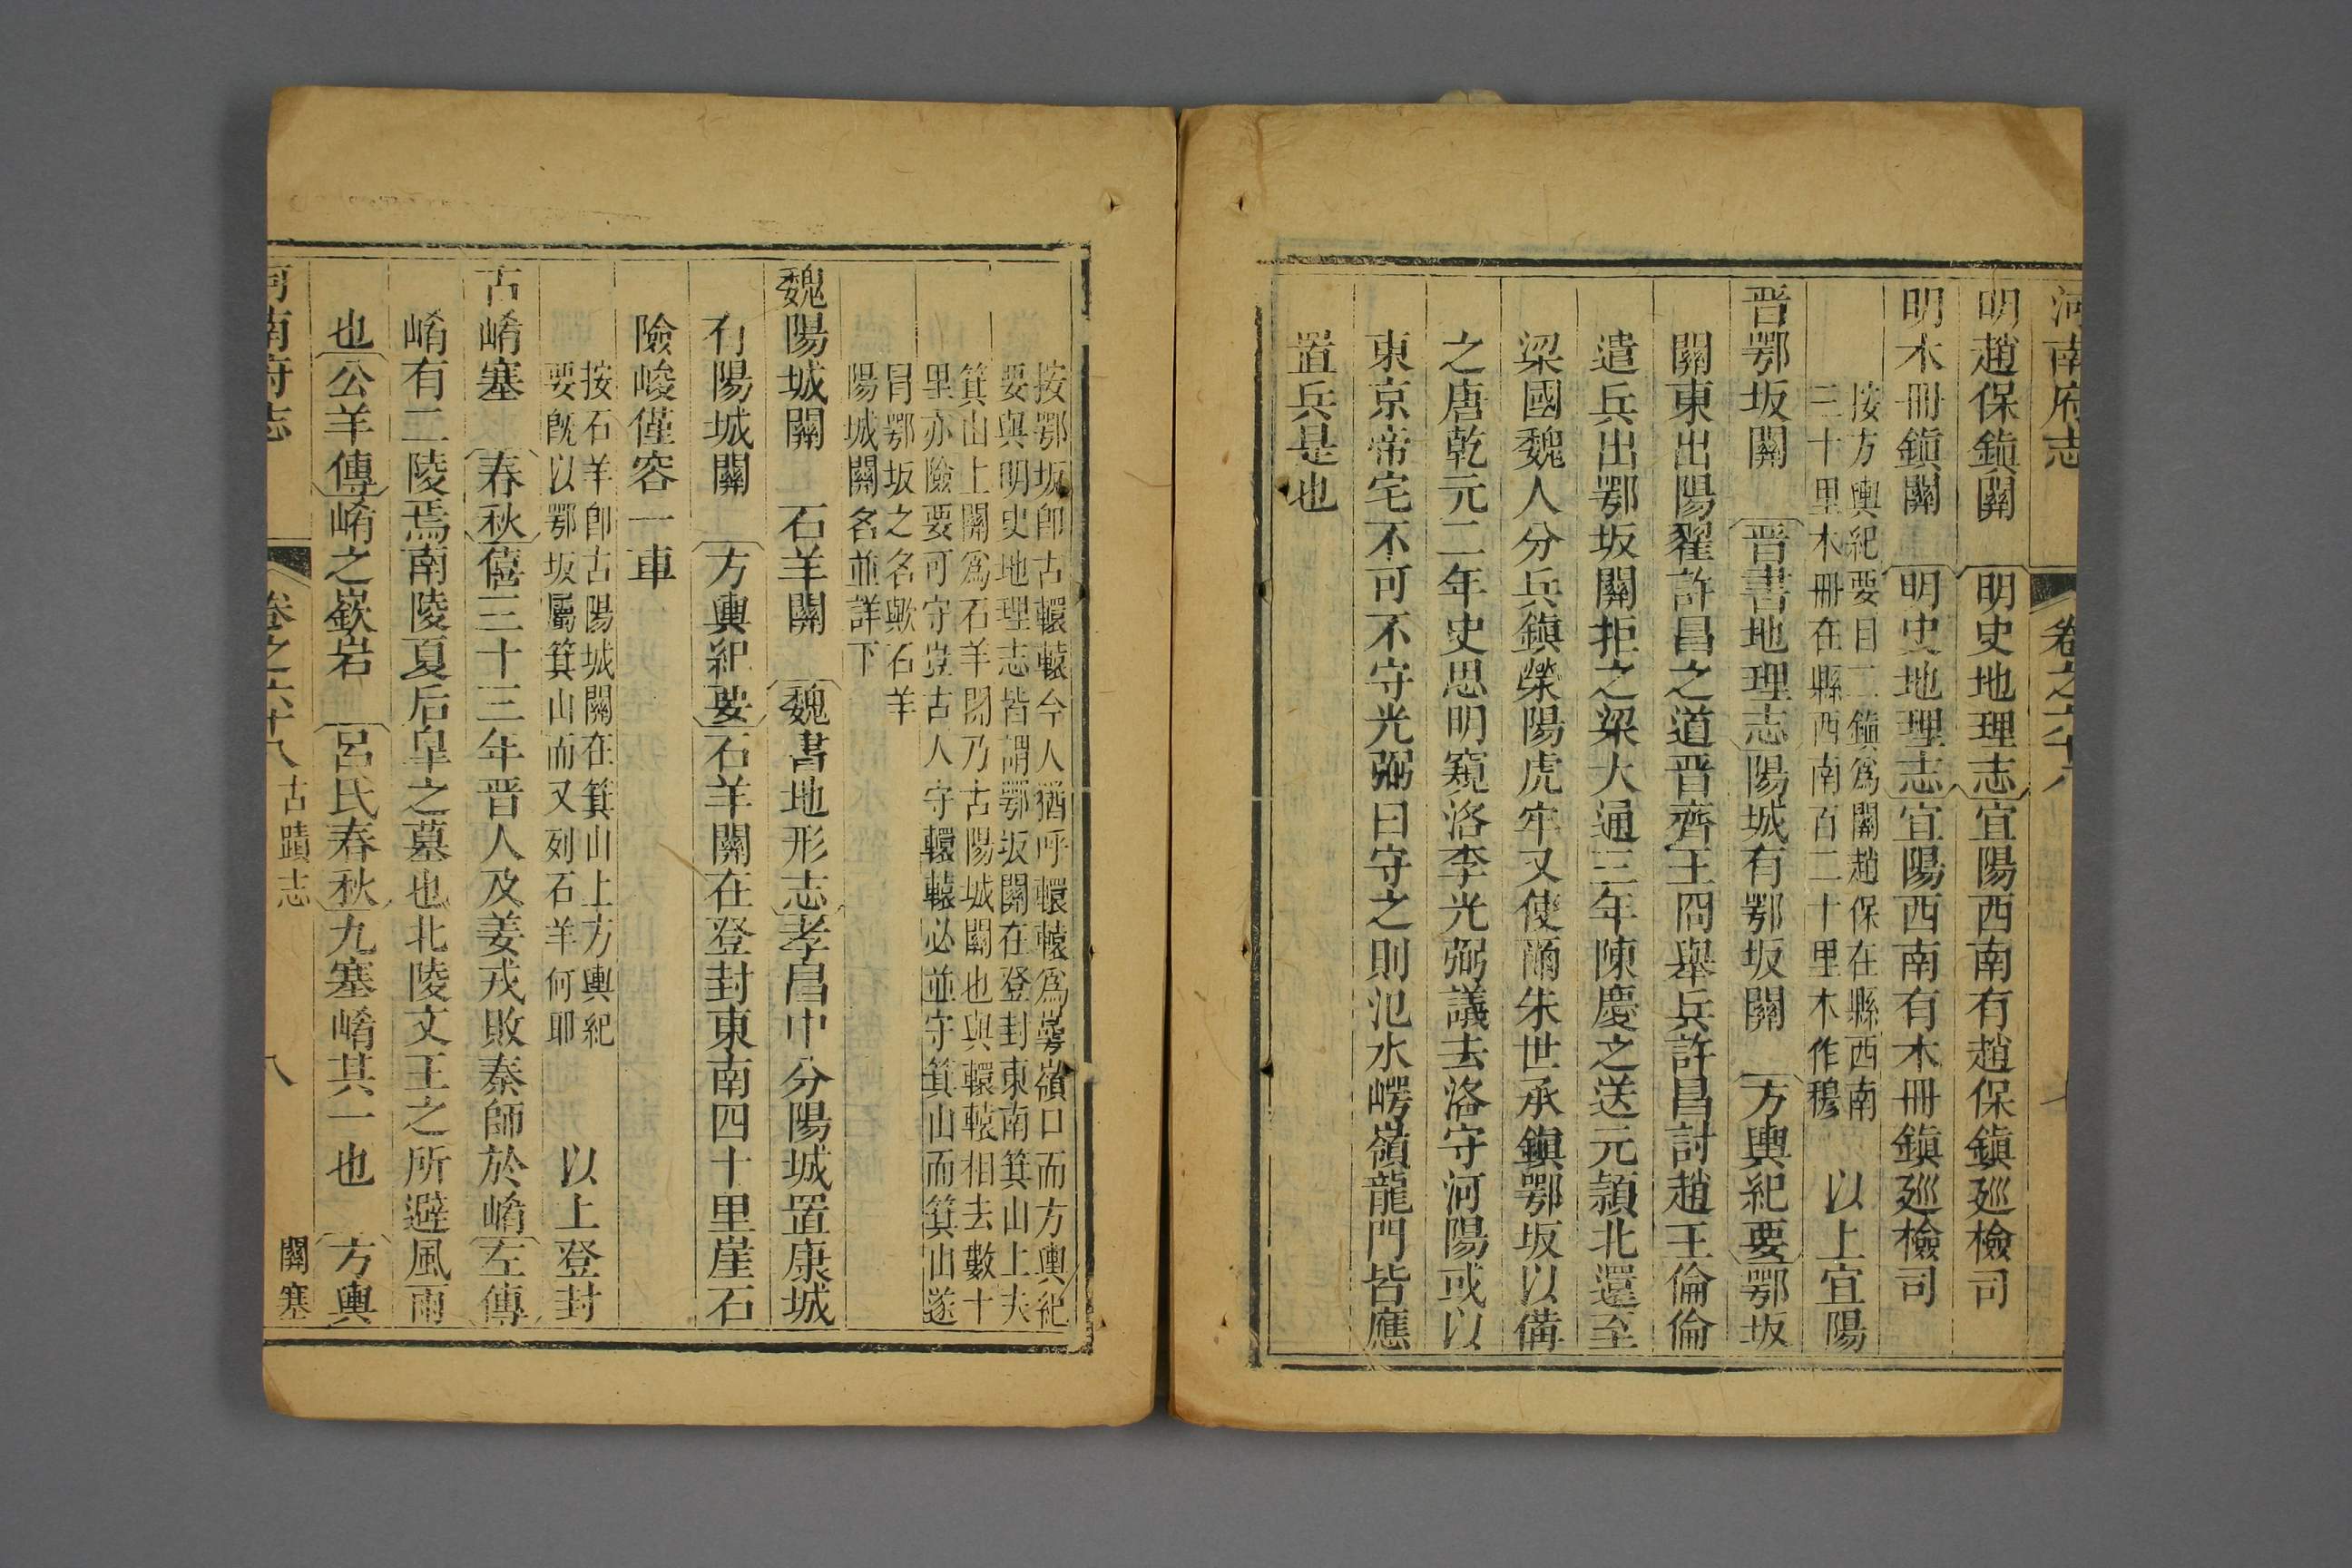 河南府志 卷之六十八 七
明趙保鎮關 明史地理志宜陽西南有趙保鎮巡檢司
明木冊鎮關 明史地理志宜陽西南有木冊鎮巡檢司
按方輿紀要曰二鎮爲關趙保在縣西南
三十里木冊在縣西南百二十里木作穆
以上宜陽
晋鄂坂關 晋書地理志陽城有鄂坂關 方輿紀要鄂坂
關東出陽翟許昌之道晋齊王冏舉兵許昌討趙王倫倫
遣兵出鄂坂關拒之梁大通三年陳慶之送元顥北還至
梁國魏人分兵鎮滎陽虎牢又使爾朱世承鎮鄂坂以備
之唐乾元二年史思明窺洛李光弼議去洛守河陽或以
東京帝宅不可不守光弼曰守之則汜水崿嶺龍門皆應
置兵是也
按鄂坂卽古轘轅今人猶呼轘轅爲崿嶺口而方輿紀
要與明史地理志皆謂鄂坂關在登封東南箕山上夫
箕山上關爲石羊關乃古陽城關也與轘轅相去數十
里亦險要可守豈古人守轘轅必並守箕山而箕山遂
冐鄂坂之名歟石羊
陽城關名並詳下
魏陽城關 石羊關 魏書地形志孝昌中分陽城置康城
有陽城關 方輿紀要石羊關在登封東南四十里崖石
險峻僅容一車
按石羊卽古陽城關在箕山上方輿紀
要旣以鄂坂屬箕山而又列石羊何耶
以上登封
古崤塞 春秋僖三十三年晋人及姜戎敗秦師於崤左傳
崤有二陵焉南陵夏后皐之墓也北陵文王之所避風雨
也公羊傳崤之嶔岩 呂氏春秋九塞崤其一也 方輿
河南府志 卷之六十八 古蹟志 八 關塞